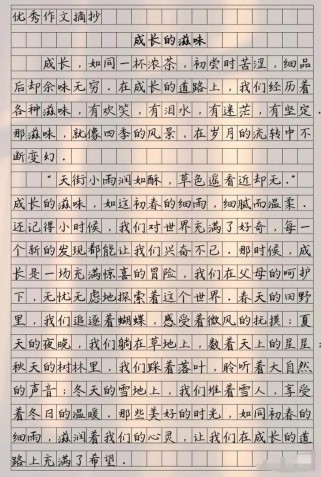 优秀作文摘抄
成长的滋味
成长，如同一杯浓茶，初尝时苦涩，细品
后却余味无穷．在成长的道路上，我们经历着
各种滋味，有欢笑，有泪水，有迷茫，有坚定．
那滋味，就像四季的风景，在岁月的流转中不
断变幻．
“天街小雨润如酥，草色遥看近却无．”
成长的滋味，如这初春的细雨，细腻而温柔．
还记得小时候，我们对世界充满了好奇，每一
个新的发现都能让我们兴奋不已．那时候，成
长是一场充满惊喜的冒险，我们在父母的呵护
下，无忧无虑地探索着这个世界．春天的田野
里，我们追逐着蝴蝶，感受着微风的抚摸；夏
天的夜晚，我们躺在草地上，数着天上的星星；
秋天的树林里，我们踩着落叶，聆听着大自然
的声音；冬天的雪地上，我们堆着雪人，享受
着冬日的温暖．那些美好的时光，如同初春的
细雨，滋润着我们的心灵，让我们在成长的道
路上充满了希望．